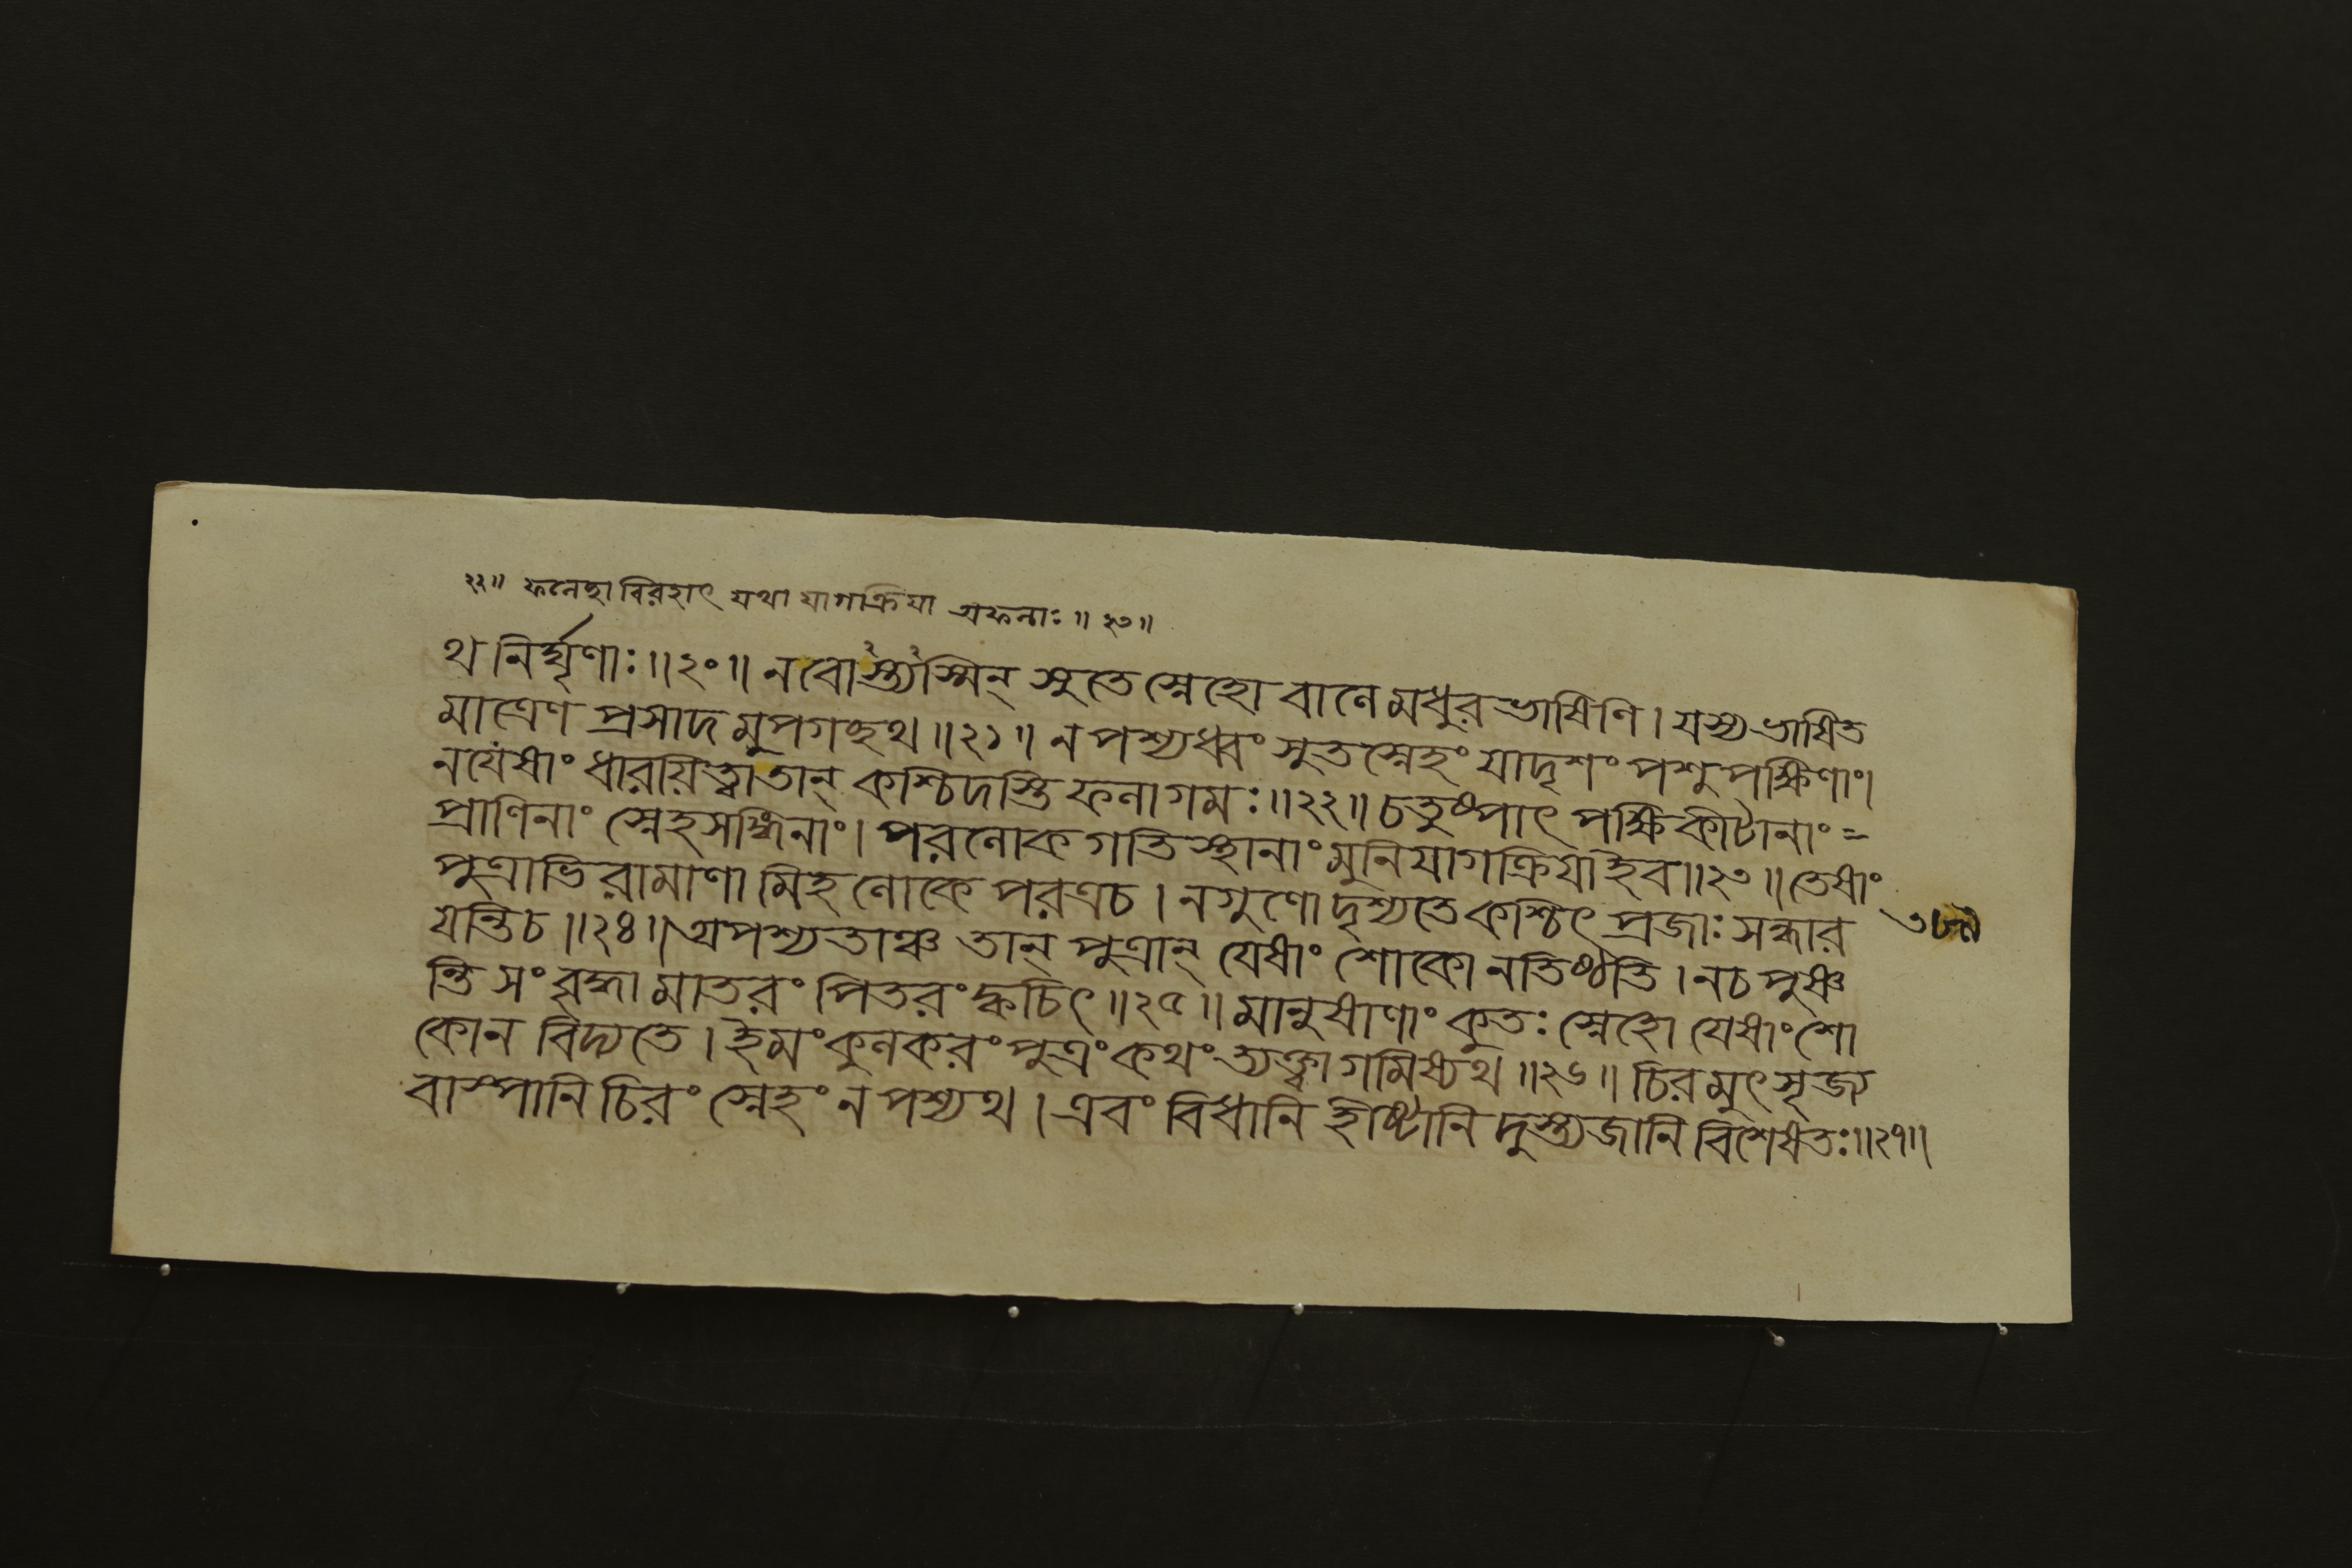 ২২॥ ফলেহাবিরহাৎ যথা যাগক্রিয়া অফলাঃ॥২৩॥
থ নির্ঘৃণাঃ॥২০॥ ন বোস্ত্যস্মিন্ সুতে স্নেহো বালে মধুরভাষিণি। যস্য ভাষিত
মাত্রেণ প্রসাদমুপগচ্ছথ॥২১॥ ন পশ্যধ্বং সুতস্নেহং যাদৃশং পশুপক্ষিণাং।
ন যেষাং ধারয়িত্বা তান্ কশ্চিদস্তি ফলাগমঃ॥২২॥ চতুষ্পাৎ পক্ষিকীটানাং=
প্রাণিনাং স্নেহসঙ্গিনাং। পরলোকগতিস্থানাং মুনিযাগক্রিয়া ইব॥২৩॥ তেষাং
পুত্রাভিরামাণামিহ লোকে পরত্র চ। ন গুণো দৃশ্যতে কশ্চিৎ প্রজাঃ সন্ধার
য়ন্তি চ॥২৪॥ অপশ্যতাঞ্চ তান্ পুত্রান্ যেষাং শোকো ন তিষ্ঠতি। ন চ পুষ্ণ
ন্তি সংবৃদ্ধা মাতরং পিতরং ক্বচিৎ॥২৫॥ মানুষাণাং কুতঃ স্নেহো যেষাং শো
কো ন বিদ্যতে। ইমং কুলকরং পুত্রং কথং ত্যক্ত্বা গমিষ্যথ॥২৬॥ চিরমুৎসৃজ্য
বাষ্পানি চিরং স্নেহং ন পশ্যথ। এবং বিধানি হীষ্টানি দুস্ত্যজানি বিশেষতঃ॥২৭॥